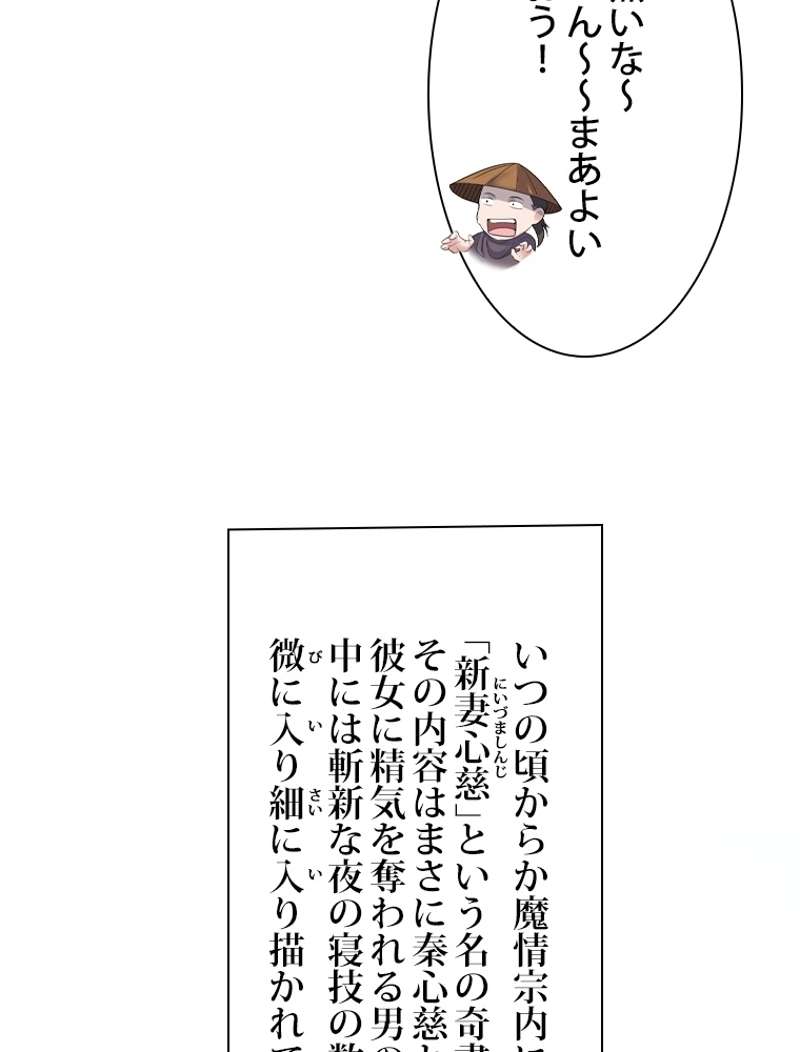 いな～
ん～～まあよい
う！
いつの頃からか魔情宗内に
「新妻心慈」という名の奇書
にいづましんじ
その内容はまさに秦心慈
彼女に精気を奪われる男の
中には斬新な夜の寝技の数
微に入り細に入り描かれて
び い さい い